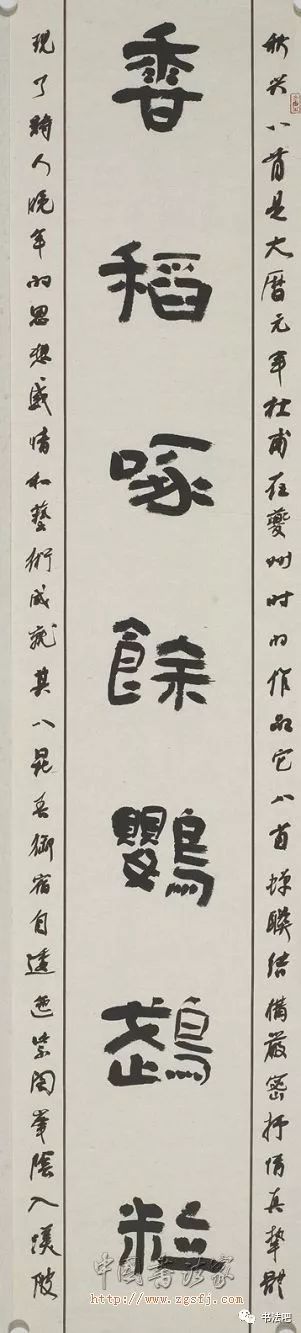 秋兴八首是大曆元年杜甫在夔州时的作品它八首蟬聯结構嚴密抒情真摯體
香稻啄餘鸚鵡粒
現了詩人晚年的思想感情和藝術成就其八昆吾御宿自逶迤紫閣峯陰入渼陂
中国书法家
http://www.zgsfj.com
书法吧